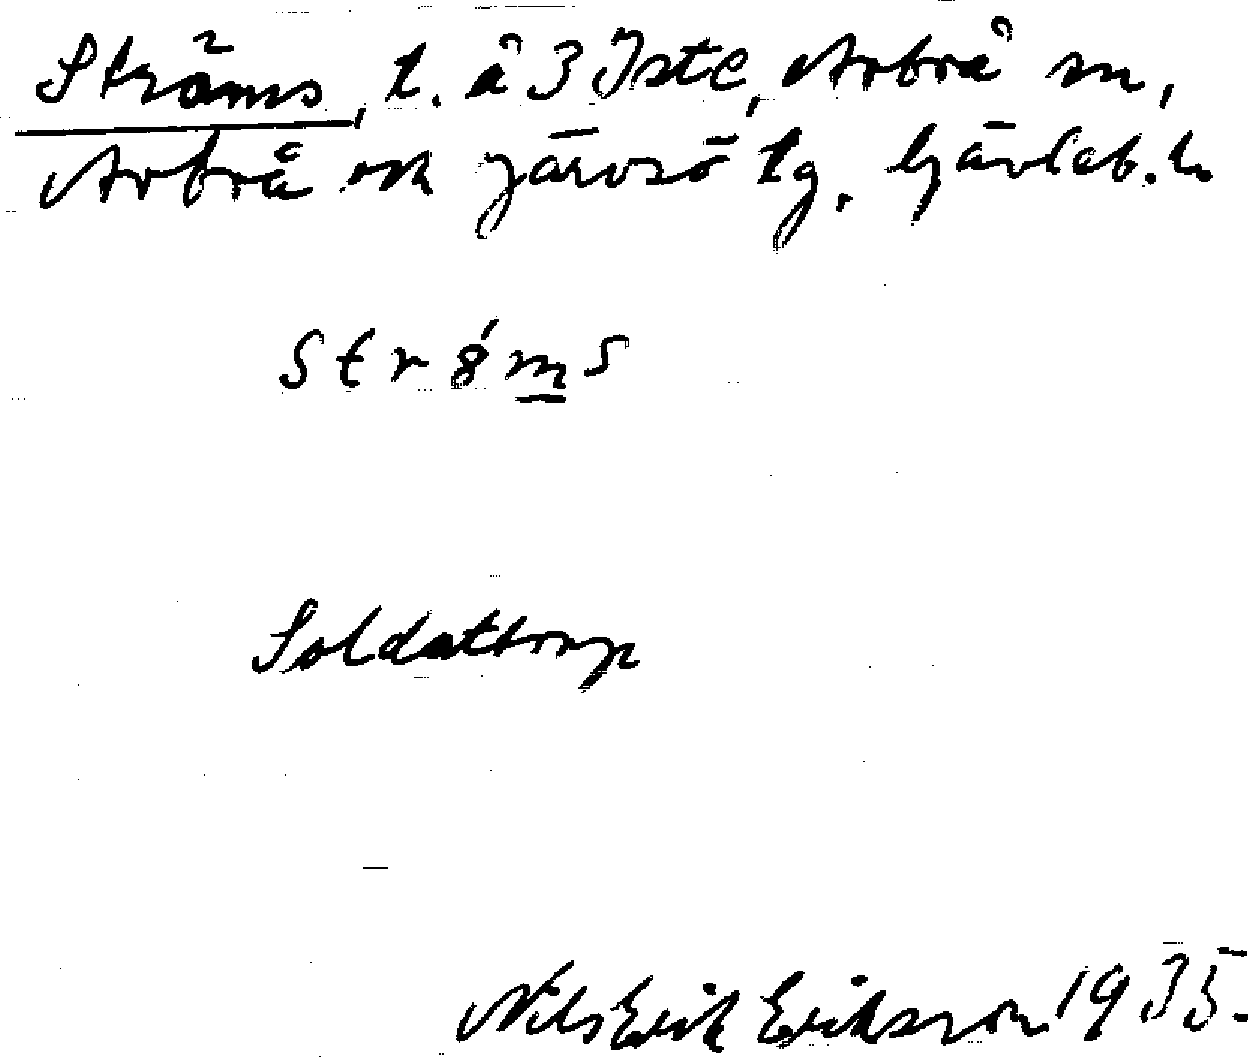 Ströms, t. å 3 Iste, Arbrå sn,
Arbrå ock Järvsö tg. Gävleb. l.
Strǿms
Soldattorp
Nils Erik Eriksson 1935.